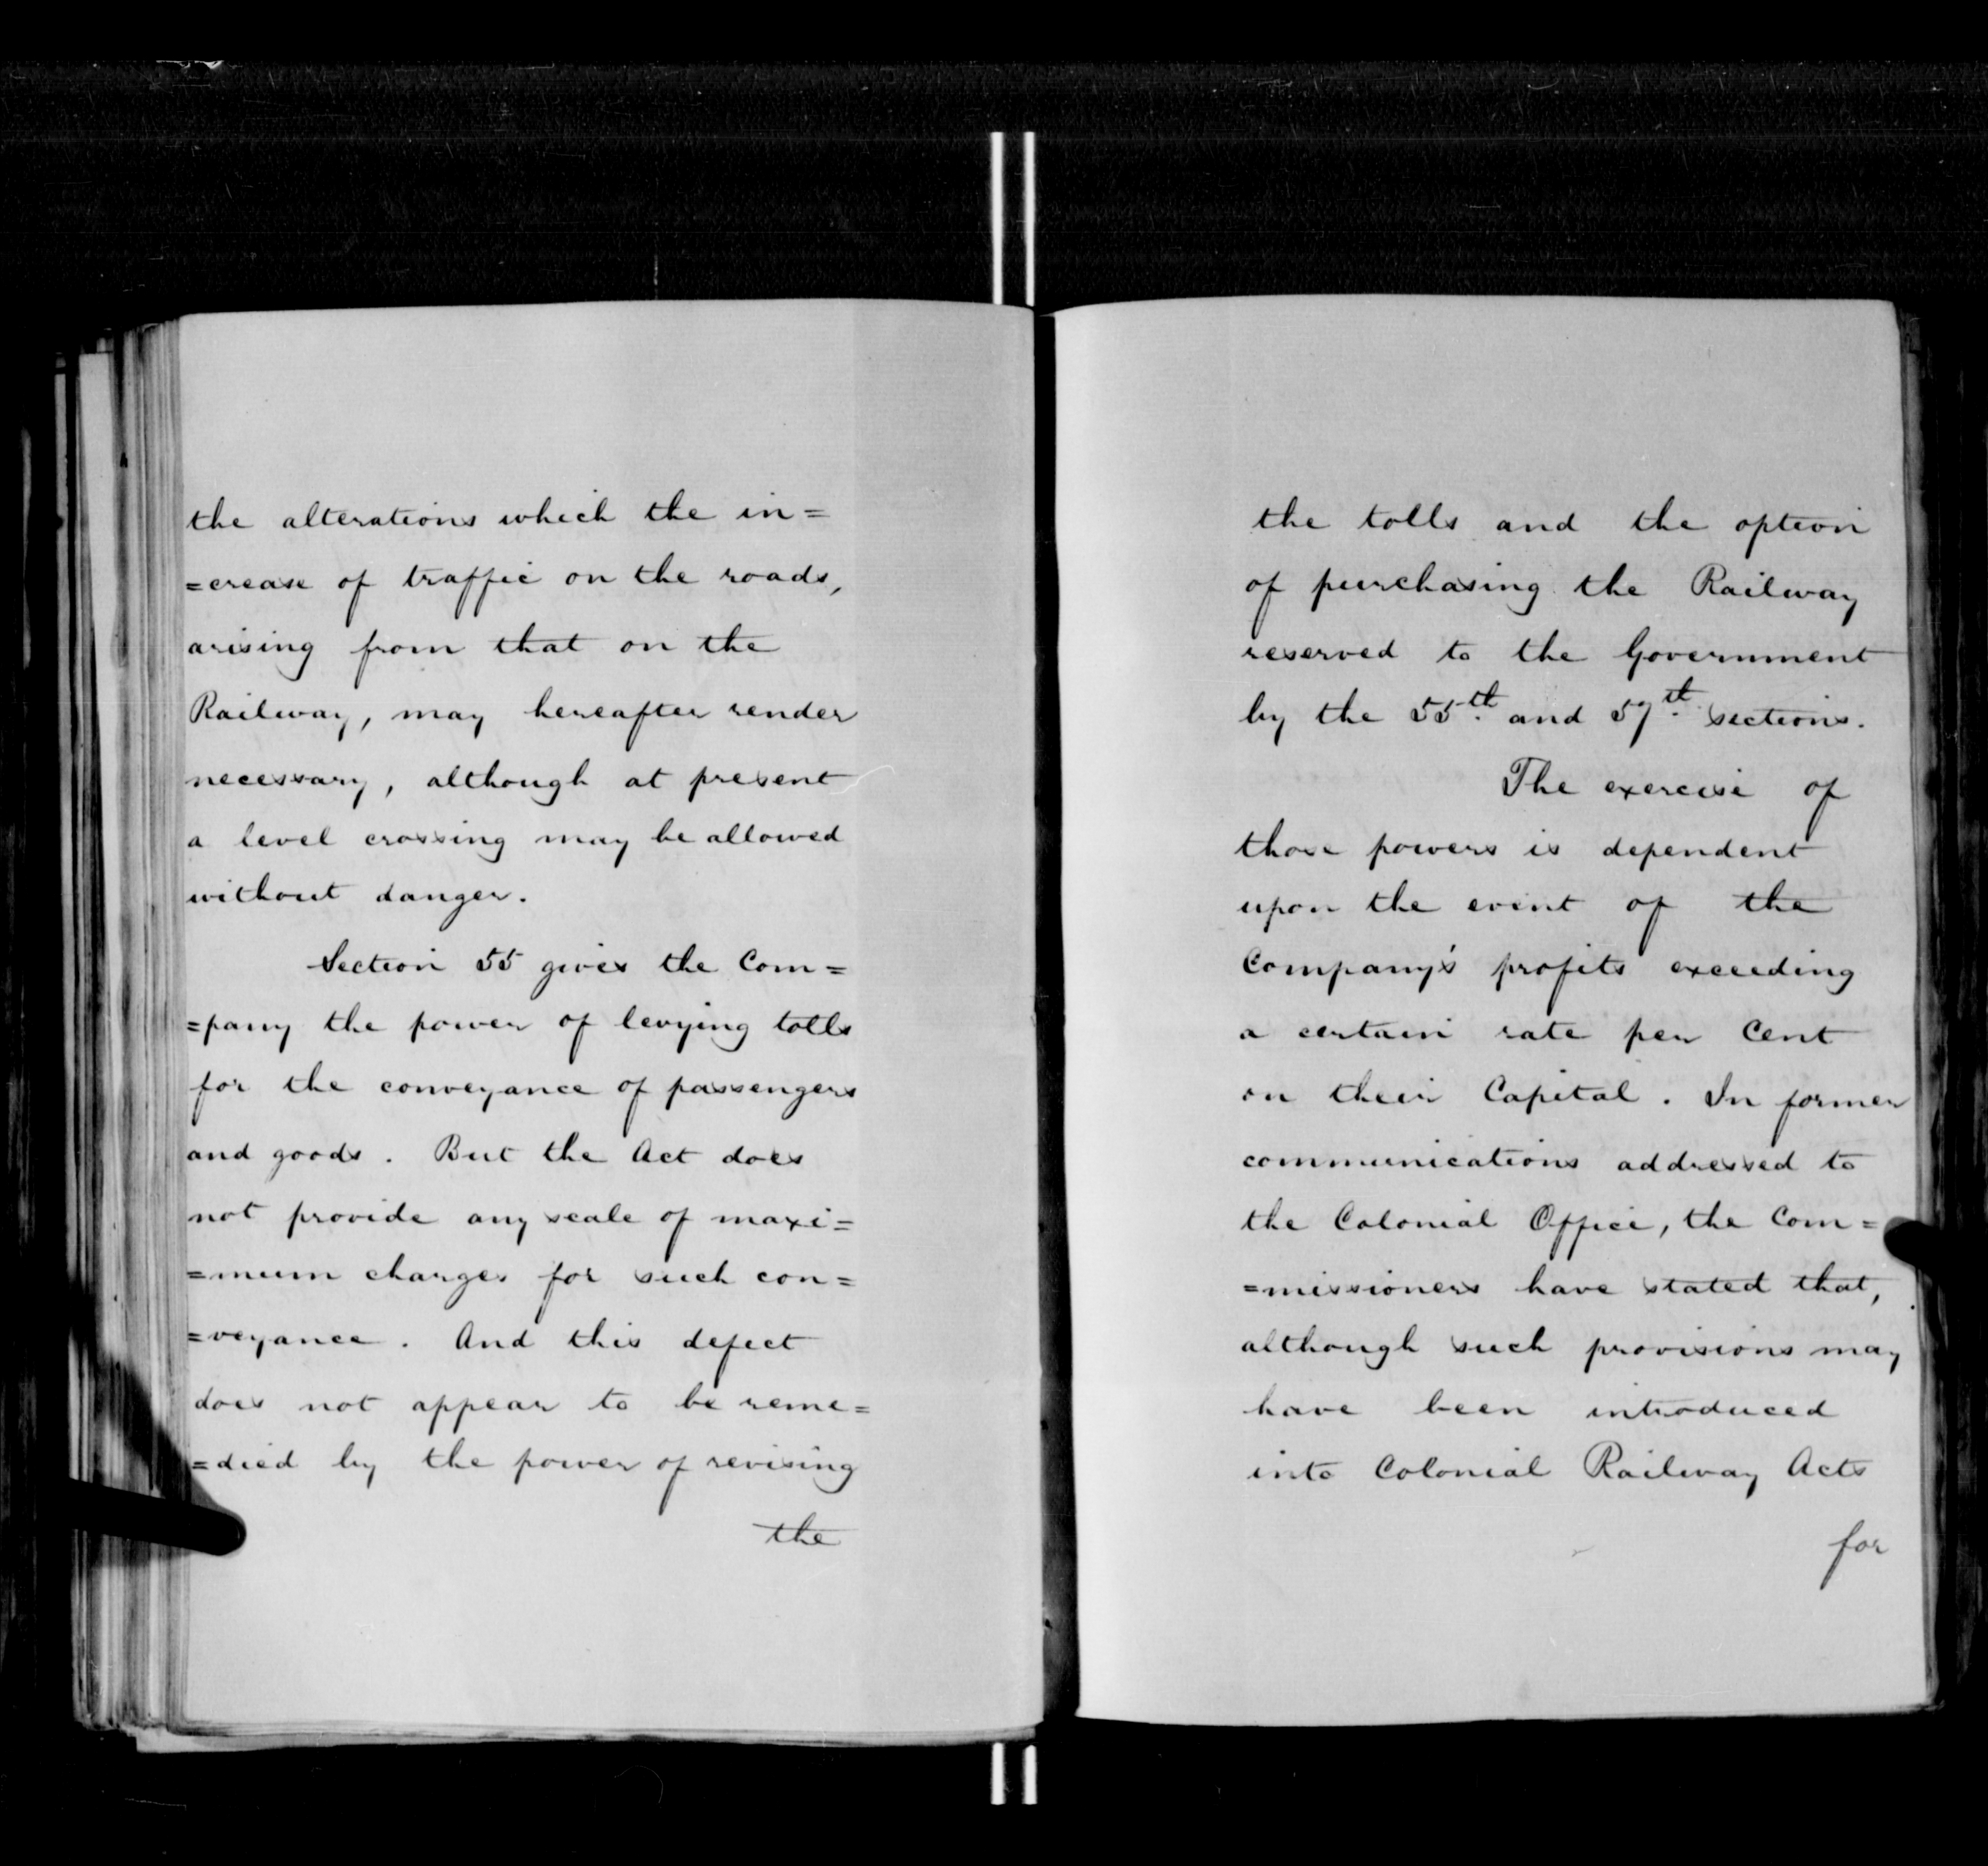 the alterations which the in=
=crease of traffic on the roads,
arising from that on the
Railway, may hereafter render
necessary, although at present
a level crossing may be allowed
without danger.
Section 55 gives the Com=
=pany the power of levying tolls
for the conveyance of passengers
and goods. But the Act does
not provide any scale of maxi=
=mum charges for such con=
=veyance. And this defect
does not appear to be reme=
=died by the power of revising
the
the tolls and the option
of purchasing the Railway
reserved to the Government
by the 55th and 57th sections.
The exercise of
those powers is dependent
upon the event of the
Company's profits exceeding
a certain rate per Cent
on their Capital. In former
communications addressed to
the Colonial Office, the Com=
=missioners have stated that,
although such provisions may
have been introduced
into Colonial Railway Acts
for